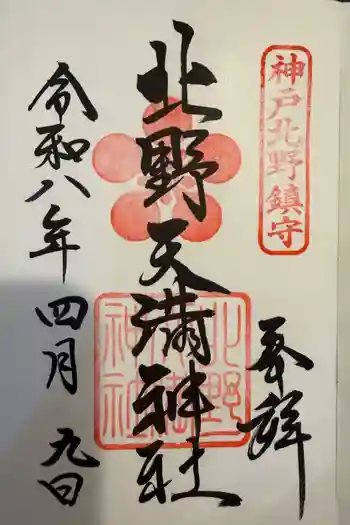 神戸北野鎮守
奉拝
北野天満神社
令和八年四月九日
北野
天満
神社